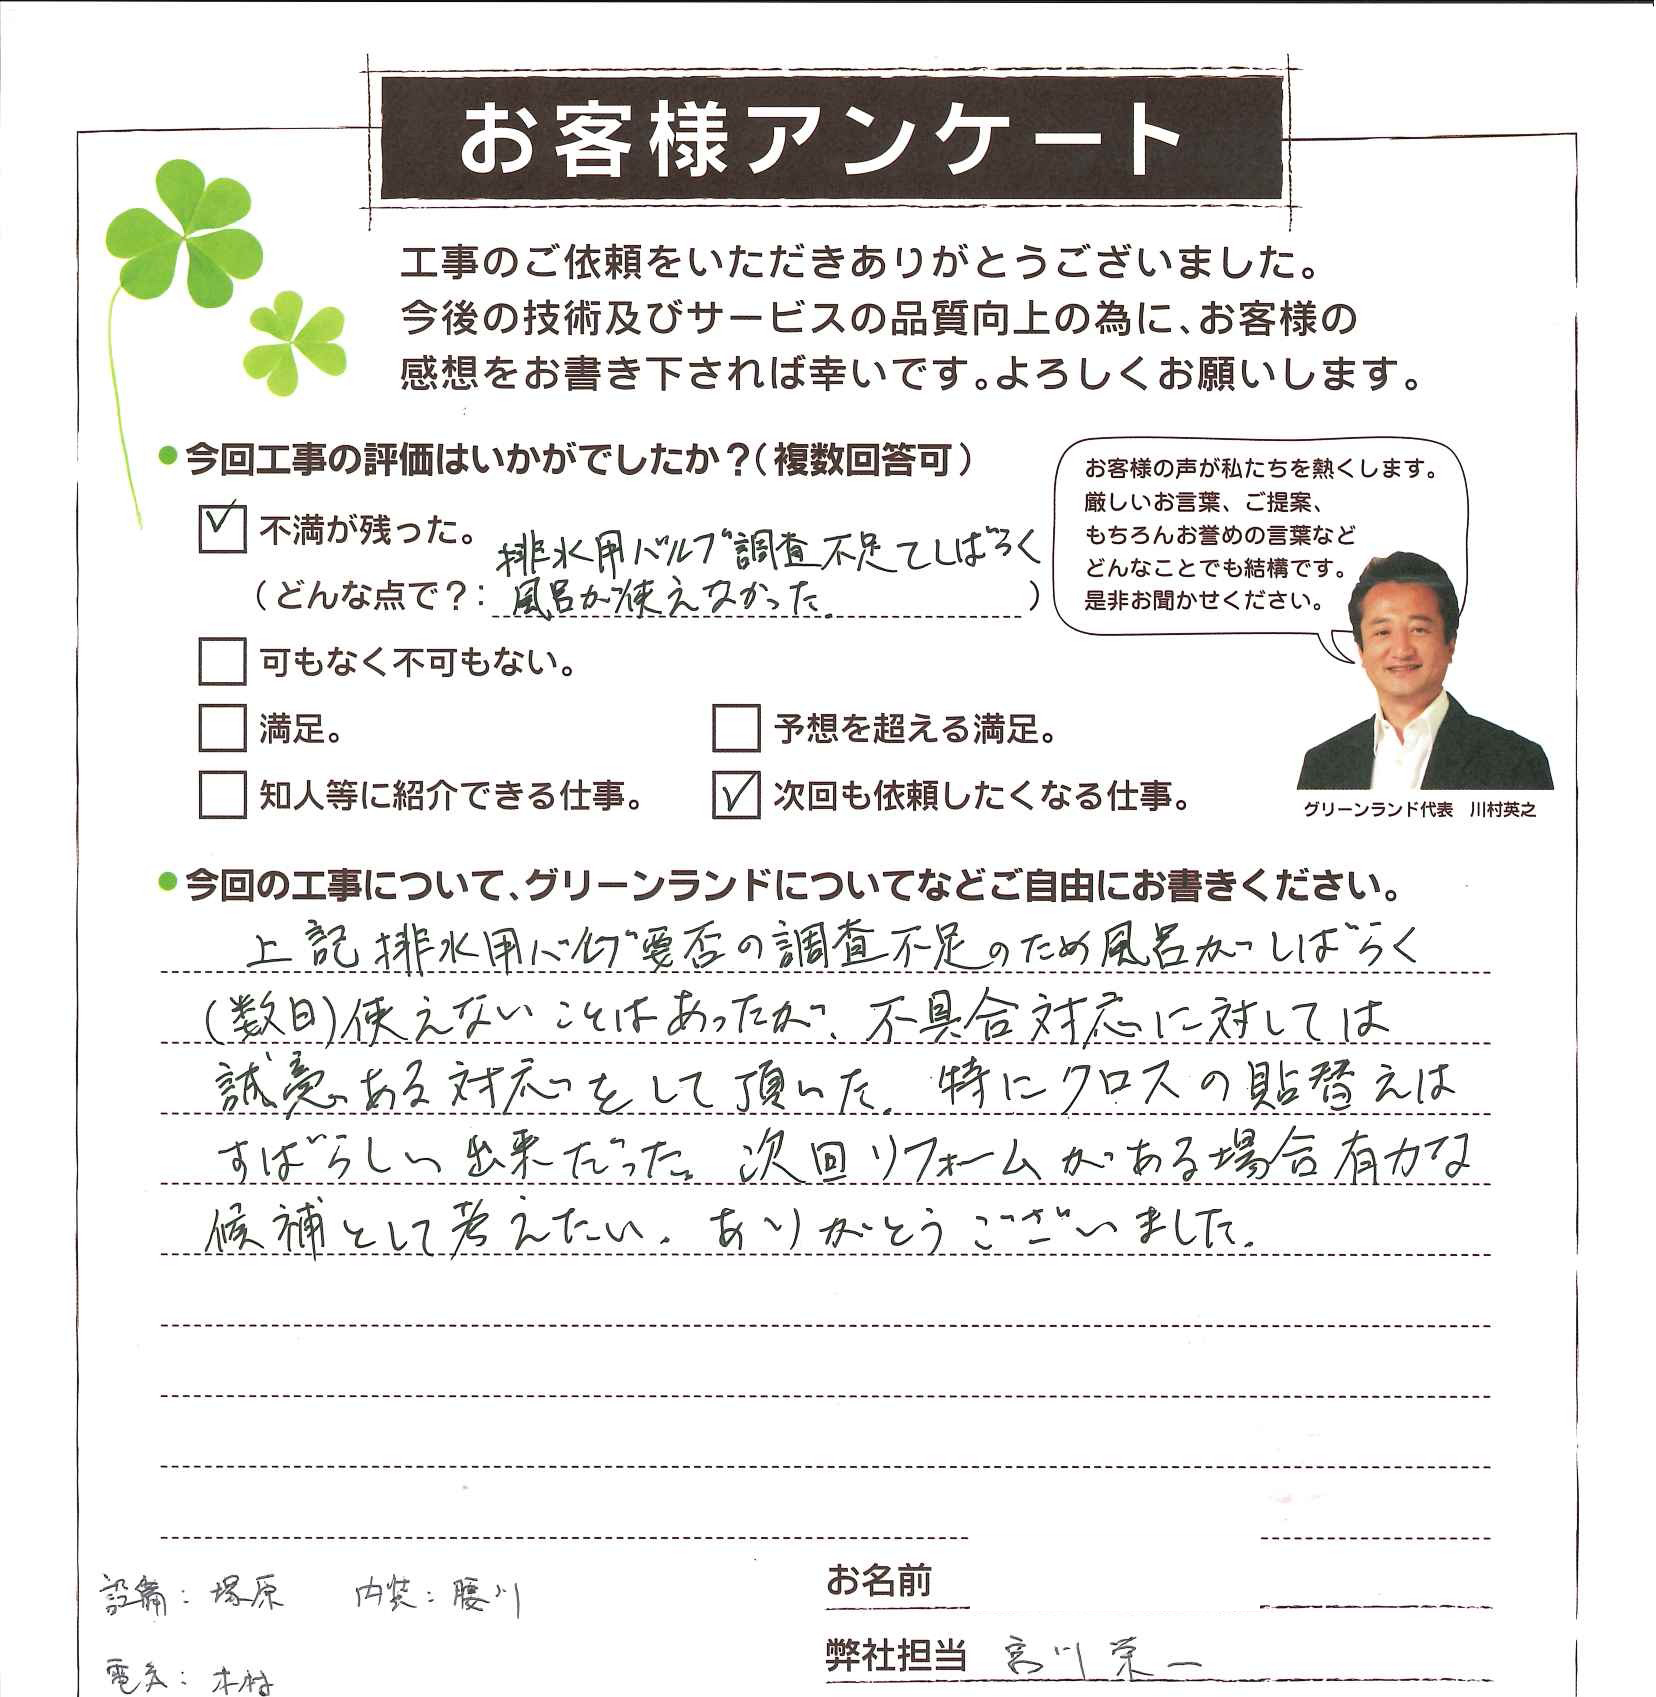 お客様アンケート
工事のご依頼をいただきありがとうございました。
今後の技術及びサービスの品質向上の為に、お客様の
感想をお書き下されば幸いです。よろしくお願いします。
今回工事の評価はいかがでしたか？（複数回答可）
不満が残った。
排水用バルブ調査不足てしばらく
（どんな点で？：風呂が使えなかった。）
可もなく不可もない。
満足。
予想を超える満足。
知人等に紹介できる仕事。
次回も依頼したくなる仕事。
お客様の声が私たちを熱くします。
厳しいお言葉、ご提案、
もちろんお誉めの言葉など
どんなことでも結構です。
是非お聞かせください。
グリーンランド代表 川村英之
今回の工事について、グリーンランドについてなどご自由にお書きください。
上記排水用バルブ要否の調査不足のため風呂がしばらく
(数日)使えないことはあったが、不具合対応に対しては
誠意ある対応をして頂いた。特にクロスの貼替えは
すばらしい出来だった。次回リフォームがある場合有力な
候補として考えたい。ありがとうございました。
お名前
弊社担当 宮川栄一
設備：塚原 内装：腰川
電気：木村